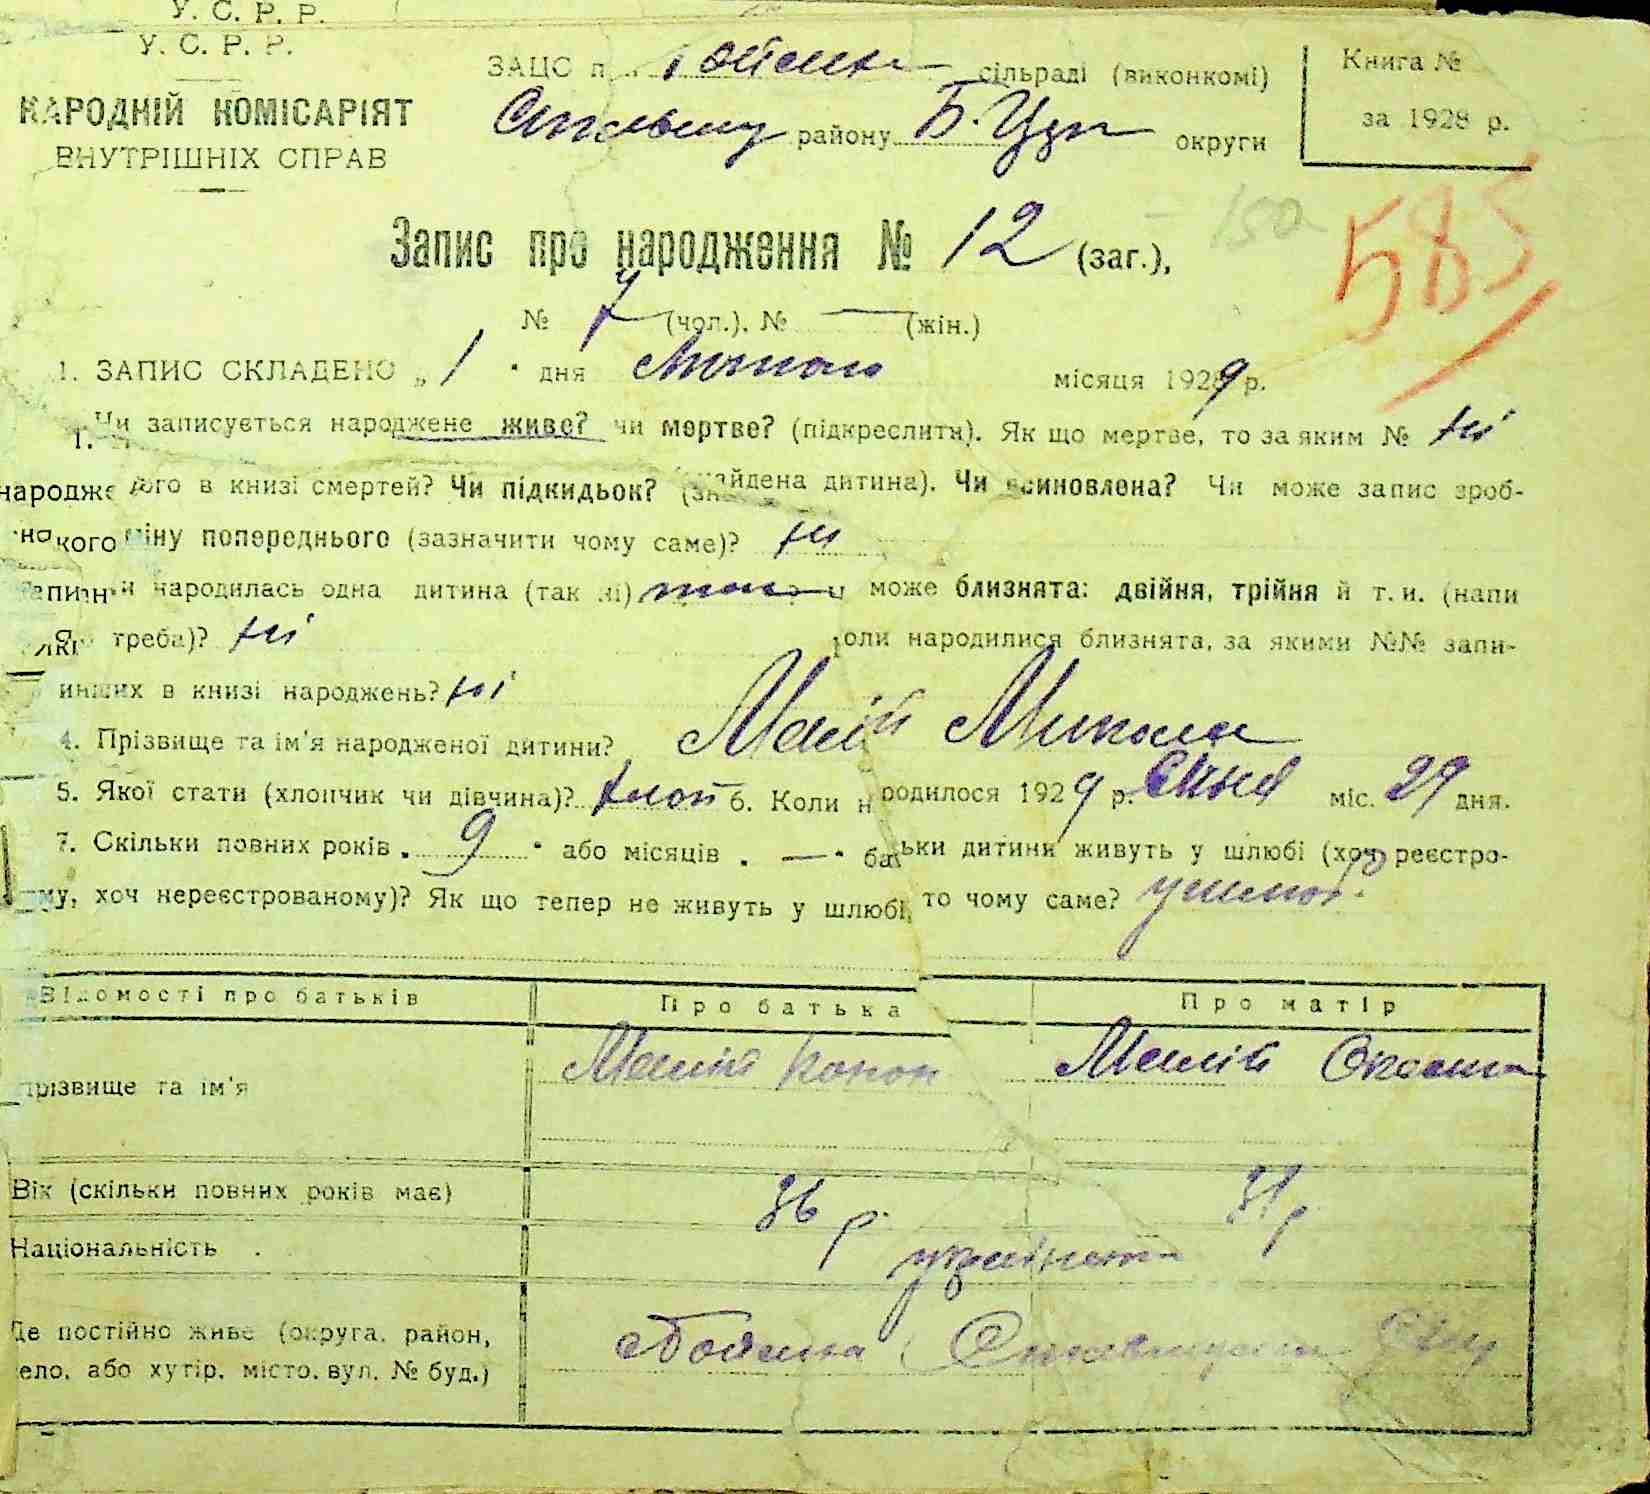 У. С. Р. Р.
У. С. Р. Р.
НАРОДНІЙ КОМІСАРІЯТ
ВНУТРІШНІХ СПРАВ
ЗАЦС п сільраді (виконкомі)
району Б. Цер округи
Книга №
за 1928 р.
Запис про народження № 12 (заг.),
150
585
№ 7 (чол.). № — (жін.)
1. ЗАПИС СКЛАДЕНО „ 1 " дня Лютого місяця 1929 р.
1. Чи записується народжене живе? чи мертве? (підкреслити). Як що мертве, то за яким № ні
народже ного в книзі смертей? Чи підкидьок? (знайдена дитина). Чи всиновлена? Чи може запис зроб-
но кого міну попереднього (зазначити чому саме)? ні
народилась одна дитина (так ні) так може близнята: двійня, трійня й т. и. (напи
треба)? ні оли народилися близнята, за якими №№ запи-
инших в книзі народжень? ні
4. Прізвище та ім'я народженої дитини? Малій Микола
5. Якої стати (хлопчик чи дівчина)? хлоп 6. Коли н родилося 1929 р. Січня міс. 29 дня.
7. Скільки повних років „ 9 " або місяців „ — " батьки дитини живуть у шлюбі (хоч реєстро-
му, хоч нереєстрованому)? Як що тепер не живуть у шлюбі, то чому саме? у шлюбі
Відомості про батьків
Про батька
Про матір
Прізвище та ім'я
Малій Конон
Малій Оксана
Вік (скільки повних років має)
36 р.
31 р.
Національність .
українська
Де постійно живе (округа, район,
село, або хутір, місто, вул. № буд.)